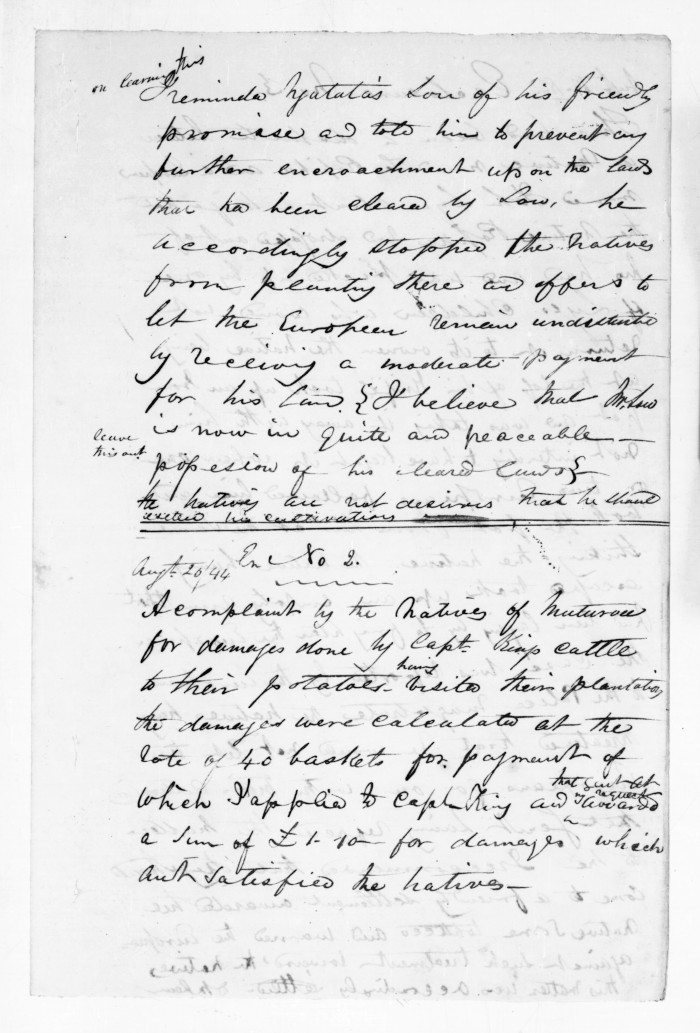 on learning this
I reminda Ngatata's Son of his friendly
promise and told him to prevent any
further encroachment upon the lands
that had been cleared by Law, he
accordingly stopped the natives
from planting there and offers to
let the European remain undisturbed
by receiving a moderate payment
for his land. { I believe that Mr. Law
is now in quite and peaceable
leave
this out
possesion of his cleared lands }
the natives are not desirous that he should
extend his cultivations
Augt. 20/44 En No 2.
A complaint by the Natives of
for damages done by Capt. Kings cattle
to their potatoes having visited their plantation
the damages were calculated at the
rate of 40 baskets for payment of
which I applied to Capt. King and that Gent at
my request awarded
a Sum of £1-10- for damages which
satisfied the natives-